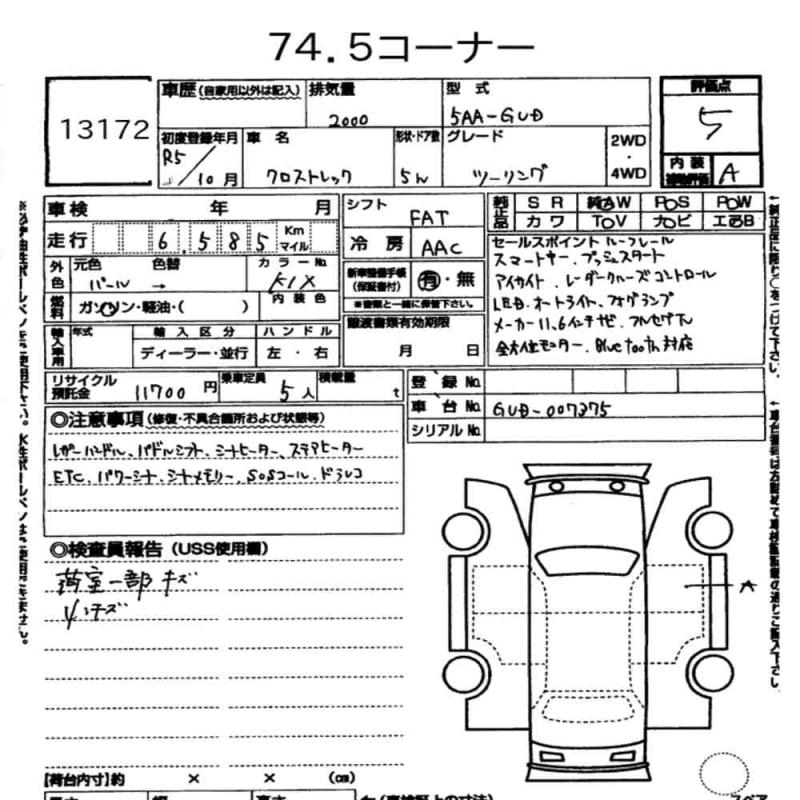 74.5コーナー
13172
車歴(自家用以外は記入) 排気量 2000 型 式 5AA-GUD
評価点 5
初度登録年月 R5/10月 車 名 クロストレック 形状・ドア数 5W グレード ツーリング 2WD・4WD
内装補助評価 A
車検 年 月
走行 6,585 Km マイル
シフト FAT
冷房 AAC
純正品 SR 純AW PS PW
カワ TV ナビ エアB
外色 元色 パール 色替 → カラーNo. K1X
燃料 ガソリン・軽油・( ) 内装色
新車整備手帳(保証書付) 有・無
※書類と一緒に保管下さい。
輸入車用 年式 輸入区分 ハンドル
ディーラー・並行 左・右
譲渡書類有効期限
月 日
セールスポイント ルーフレール
スマートキー、プッシュスタート
アイサイト、レーダークルーズコントロール
LED、オートライト、フォグランプ
メーカー11.6インチナビ、フルセグTV
全方位モニター、Bluetooth対応
リサイクル預託金 11700円 乗車定員 5人 積載量 t
登録No.
車台No. GUD-007375
シリアルNo.
◎注意事項(修復・不具合箇所および状態等)
レザーハンドル、パドルシフト、シートヒーター、ステアヒーター
ETC、パワーシート、シートメモリー、SOSコール、ドラレコ
◎検査員報告(USS使用欄)
荷室一部キズ
キズ
A
【荷台内寸】約 × × (cm)
スペア